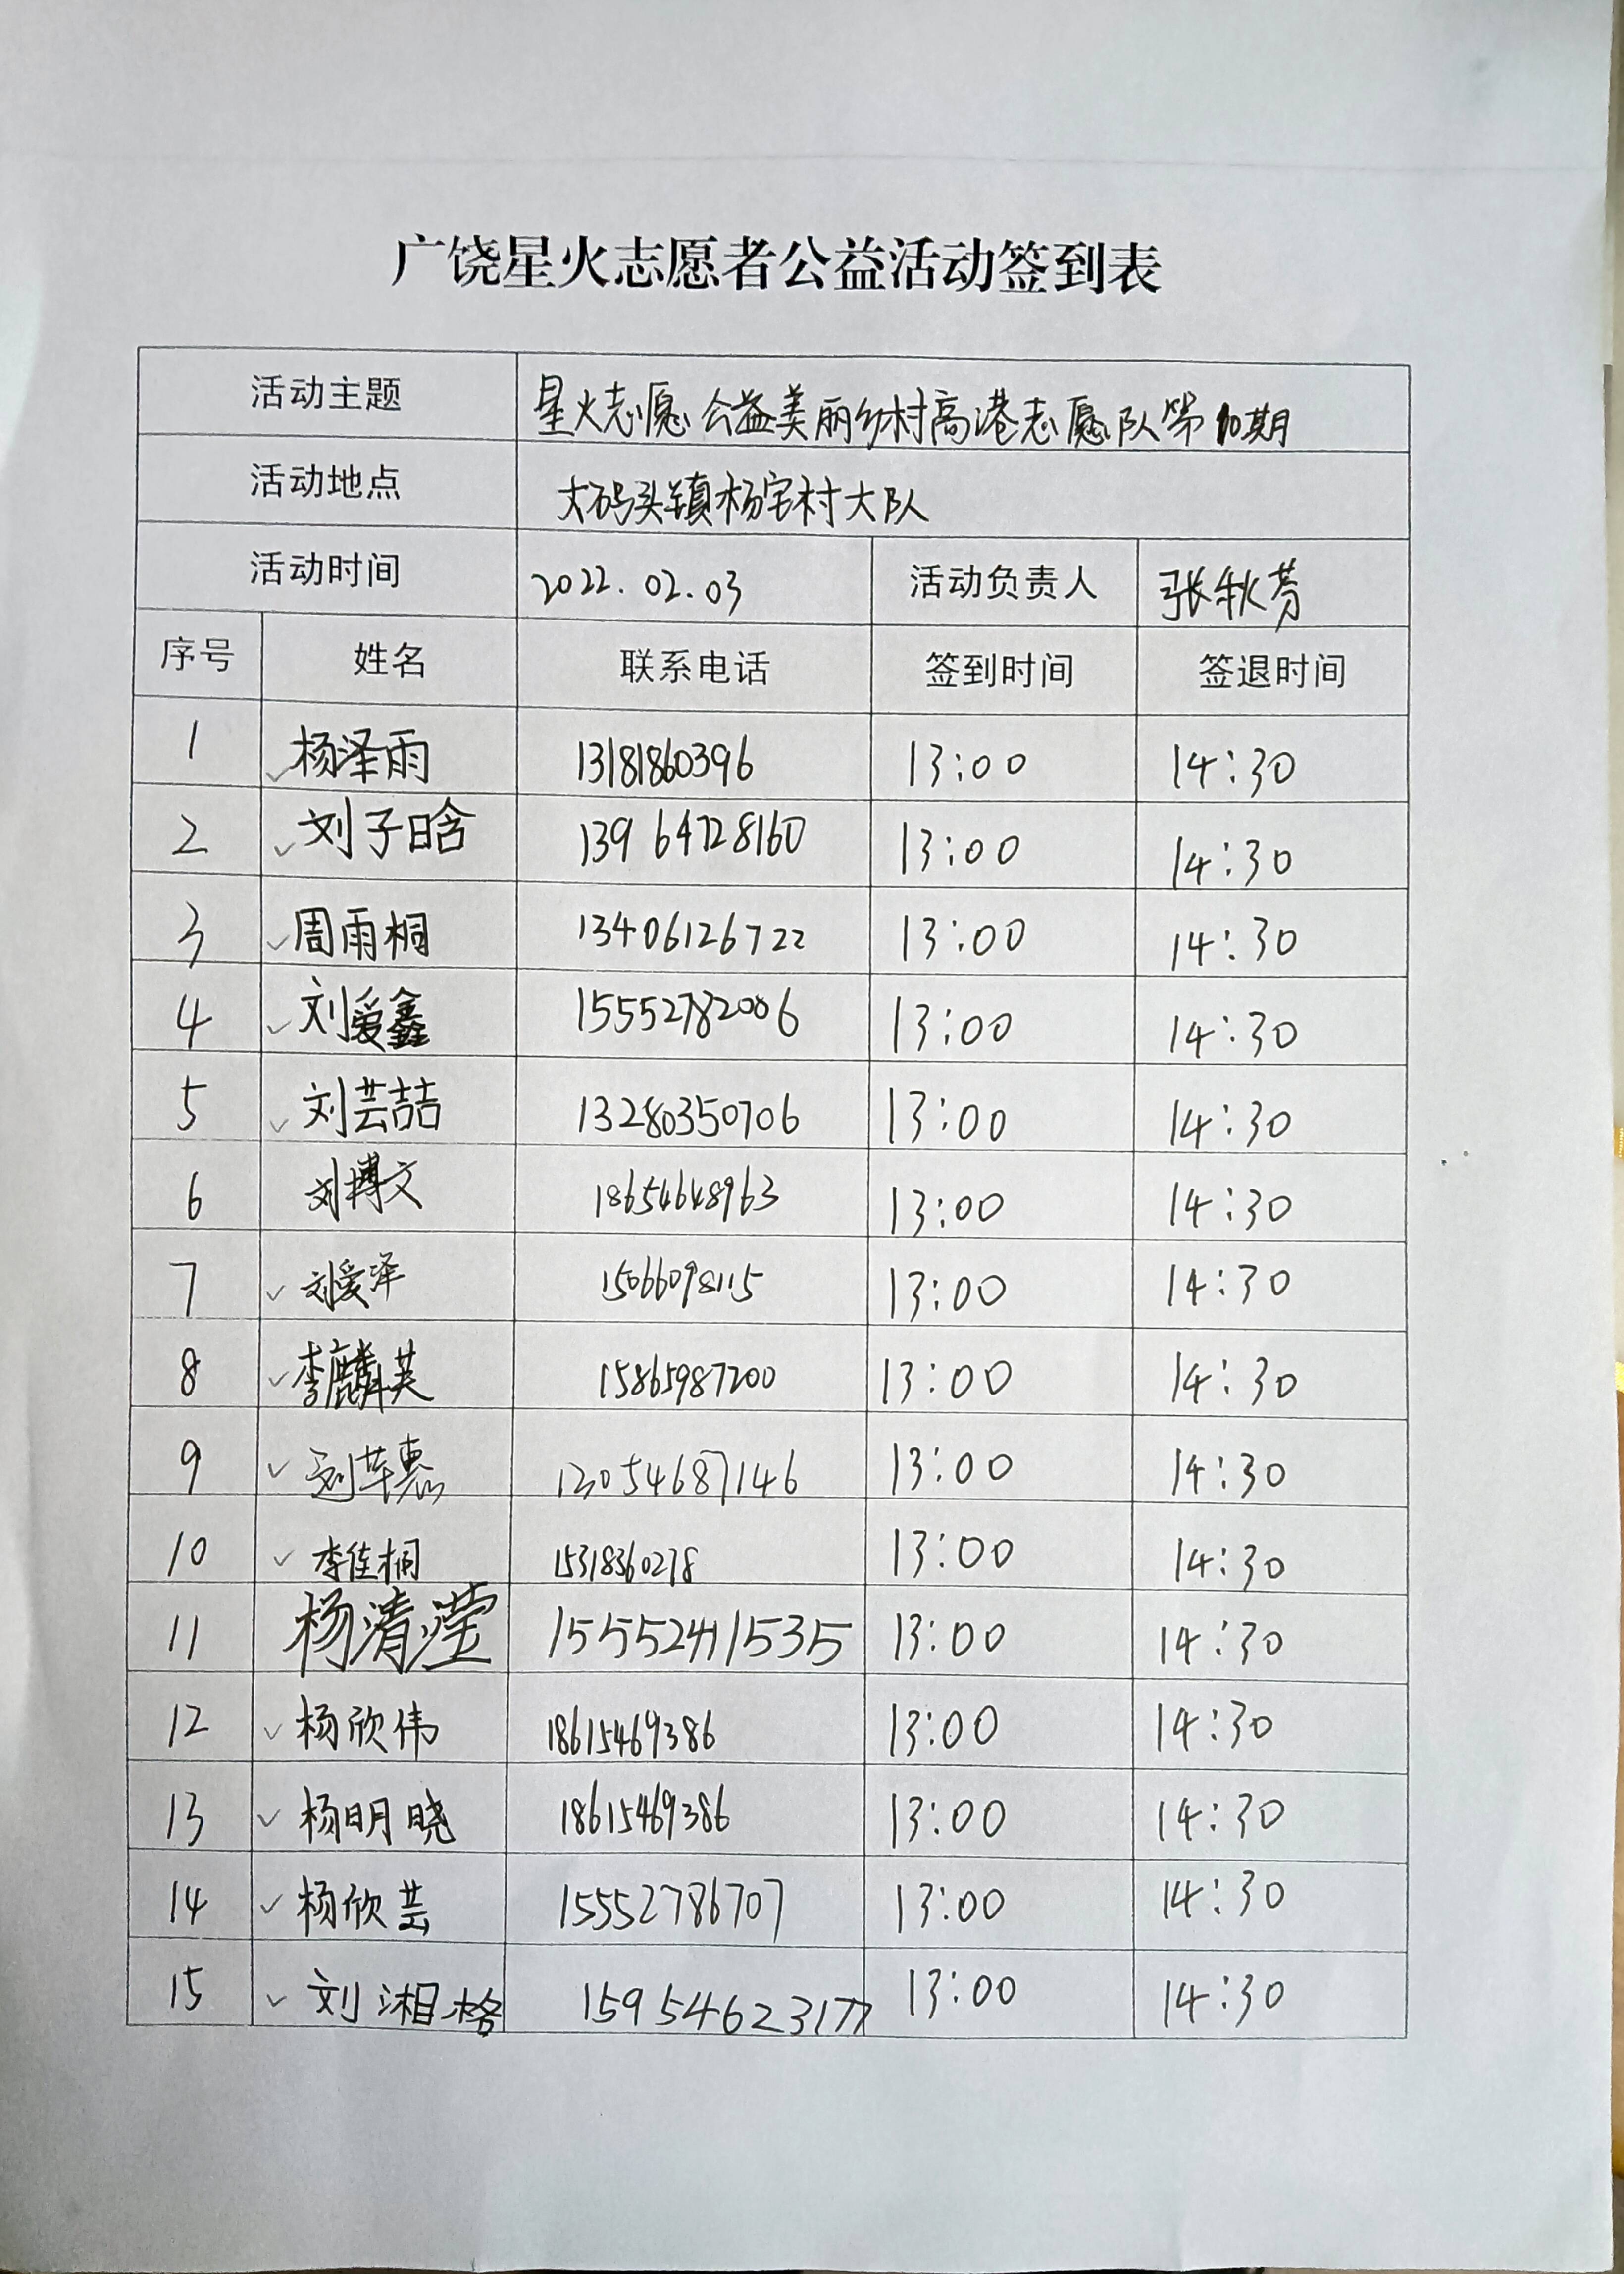 广饶星火志愿者公益活动签到表
活动主题 星火志愿公益美丽乡村高港志愿队第10期
活动地点 大码头镇杨宅村大队
活动时间 2022.02.03 活动负责人 张秋芳
序号 姓名 联系电话 签到时间 签退时间
1 杨泽雨 13181860396 13:00 14:30
2 刘子晗 13964728160 13:00 14:30
3 周雨桐 13406126722 13:00 14:30
4 刘爱鑫 15552782006 13:00 14:30
5 刘芸喆 13280350706 13:00 14:30
6 刘博文 18654648963 13:00 14:30
7 刘爱泽 15066098115 13:00 14:30
8 李麟芙 15865987200 13:00 14:30
9 刘苹惠 13054687146 13:00 14:30
10 李佳桐 15318360278 13:00 14:30
11 杨清滢 13:00 14:30
12 杨欣伟 18615469386 13:00 14:30
13 杨明晓 18615469386 13:00 14:30
14 杨欣芸 15552786707 13:00 14:30
15 刘湘格 15954623177 13:00 14:30